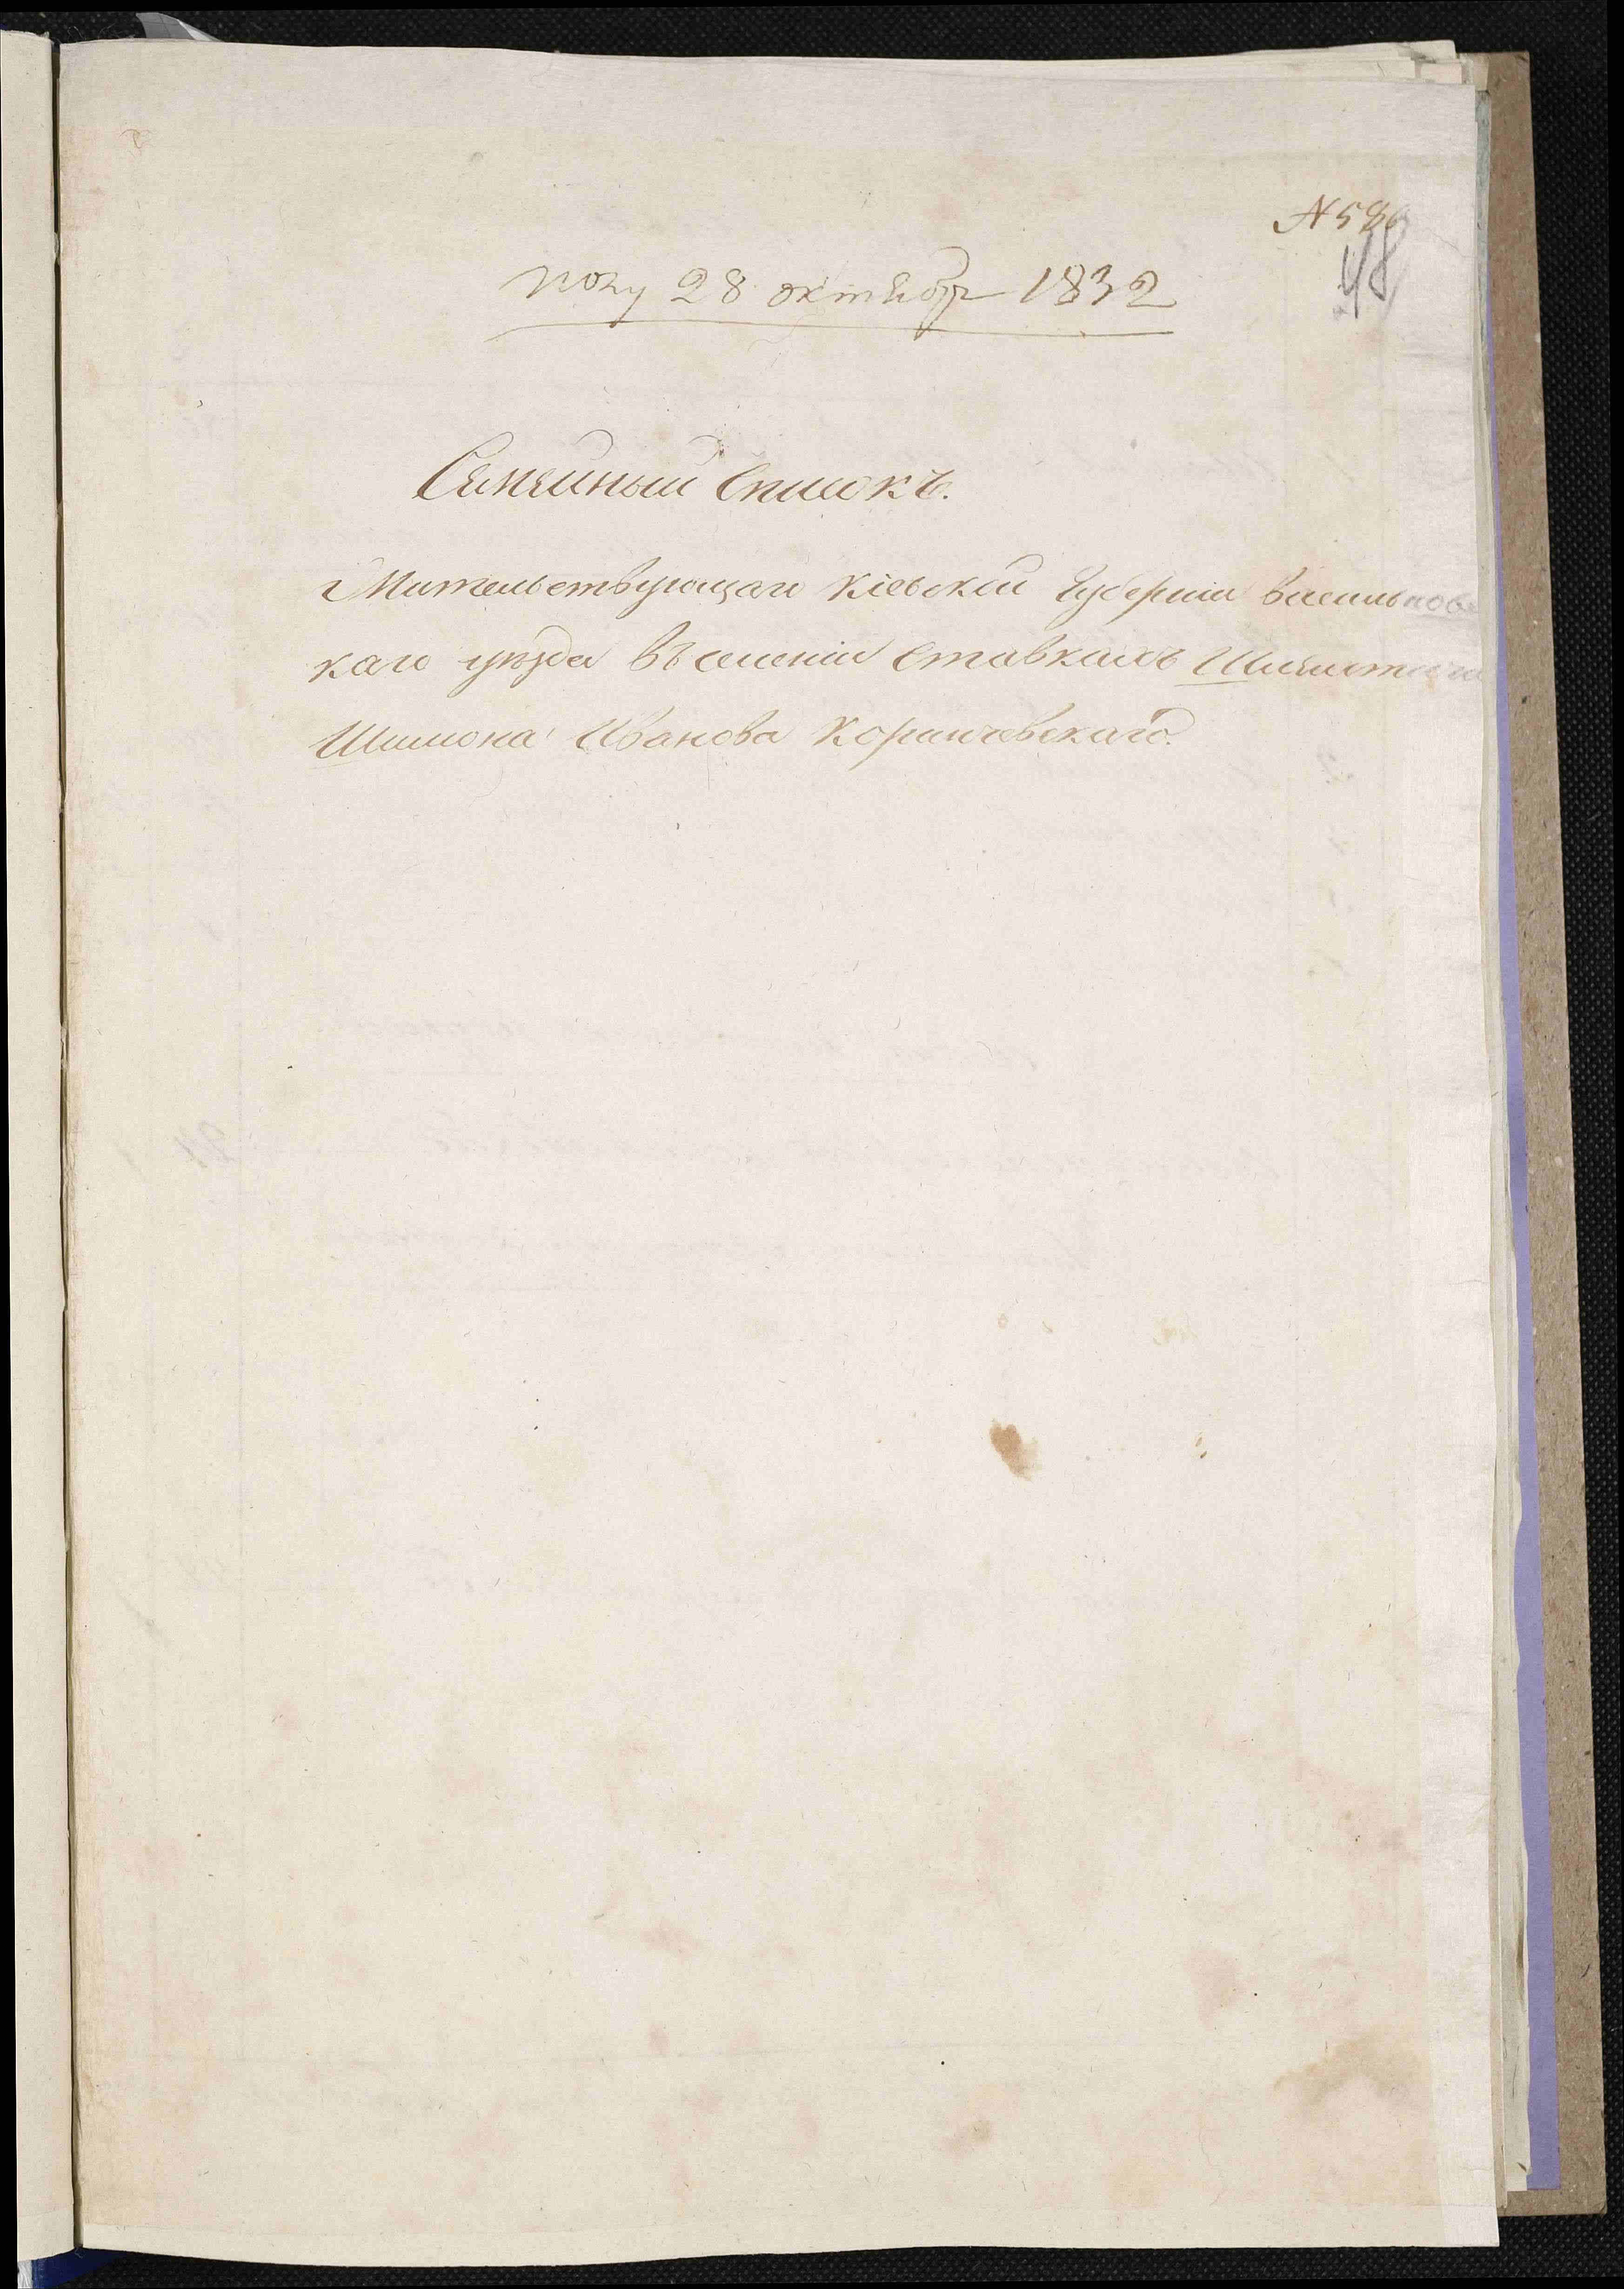 N 586
48
полу 28 октября 1832
Семейный Список.
Жительствующаго Кіевской Губерніи Васильковс
каго уезда въ селеніи Ставкахъ Шляхтича
Шимона Иванова Коринчевскаго.